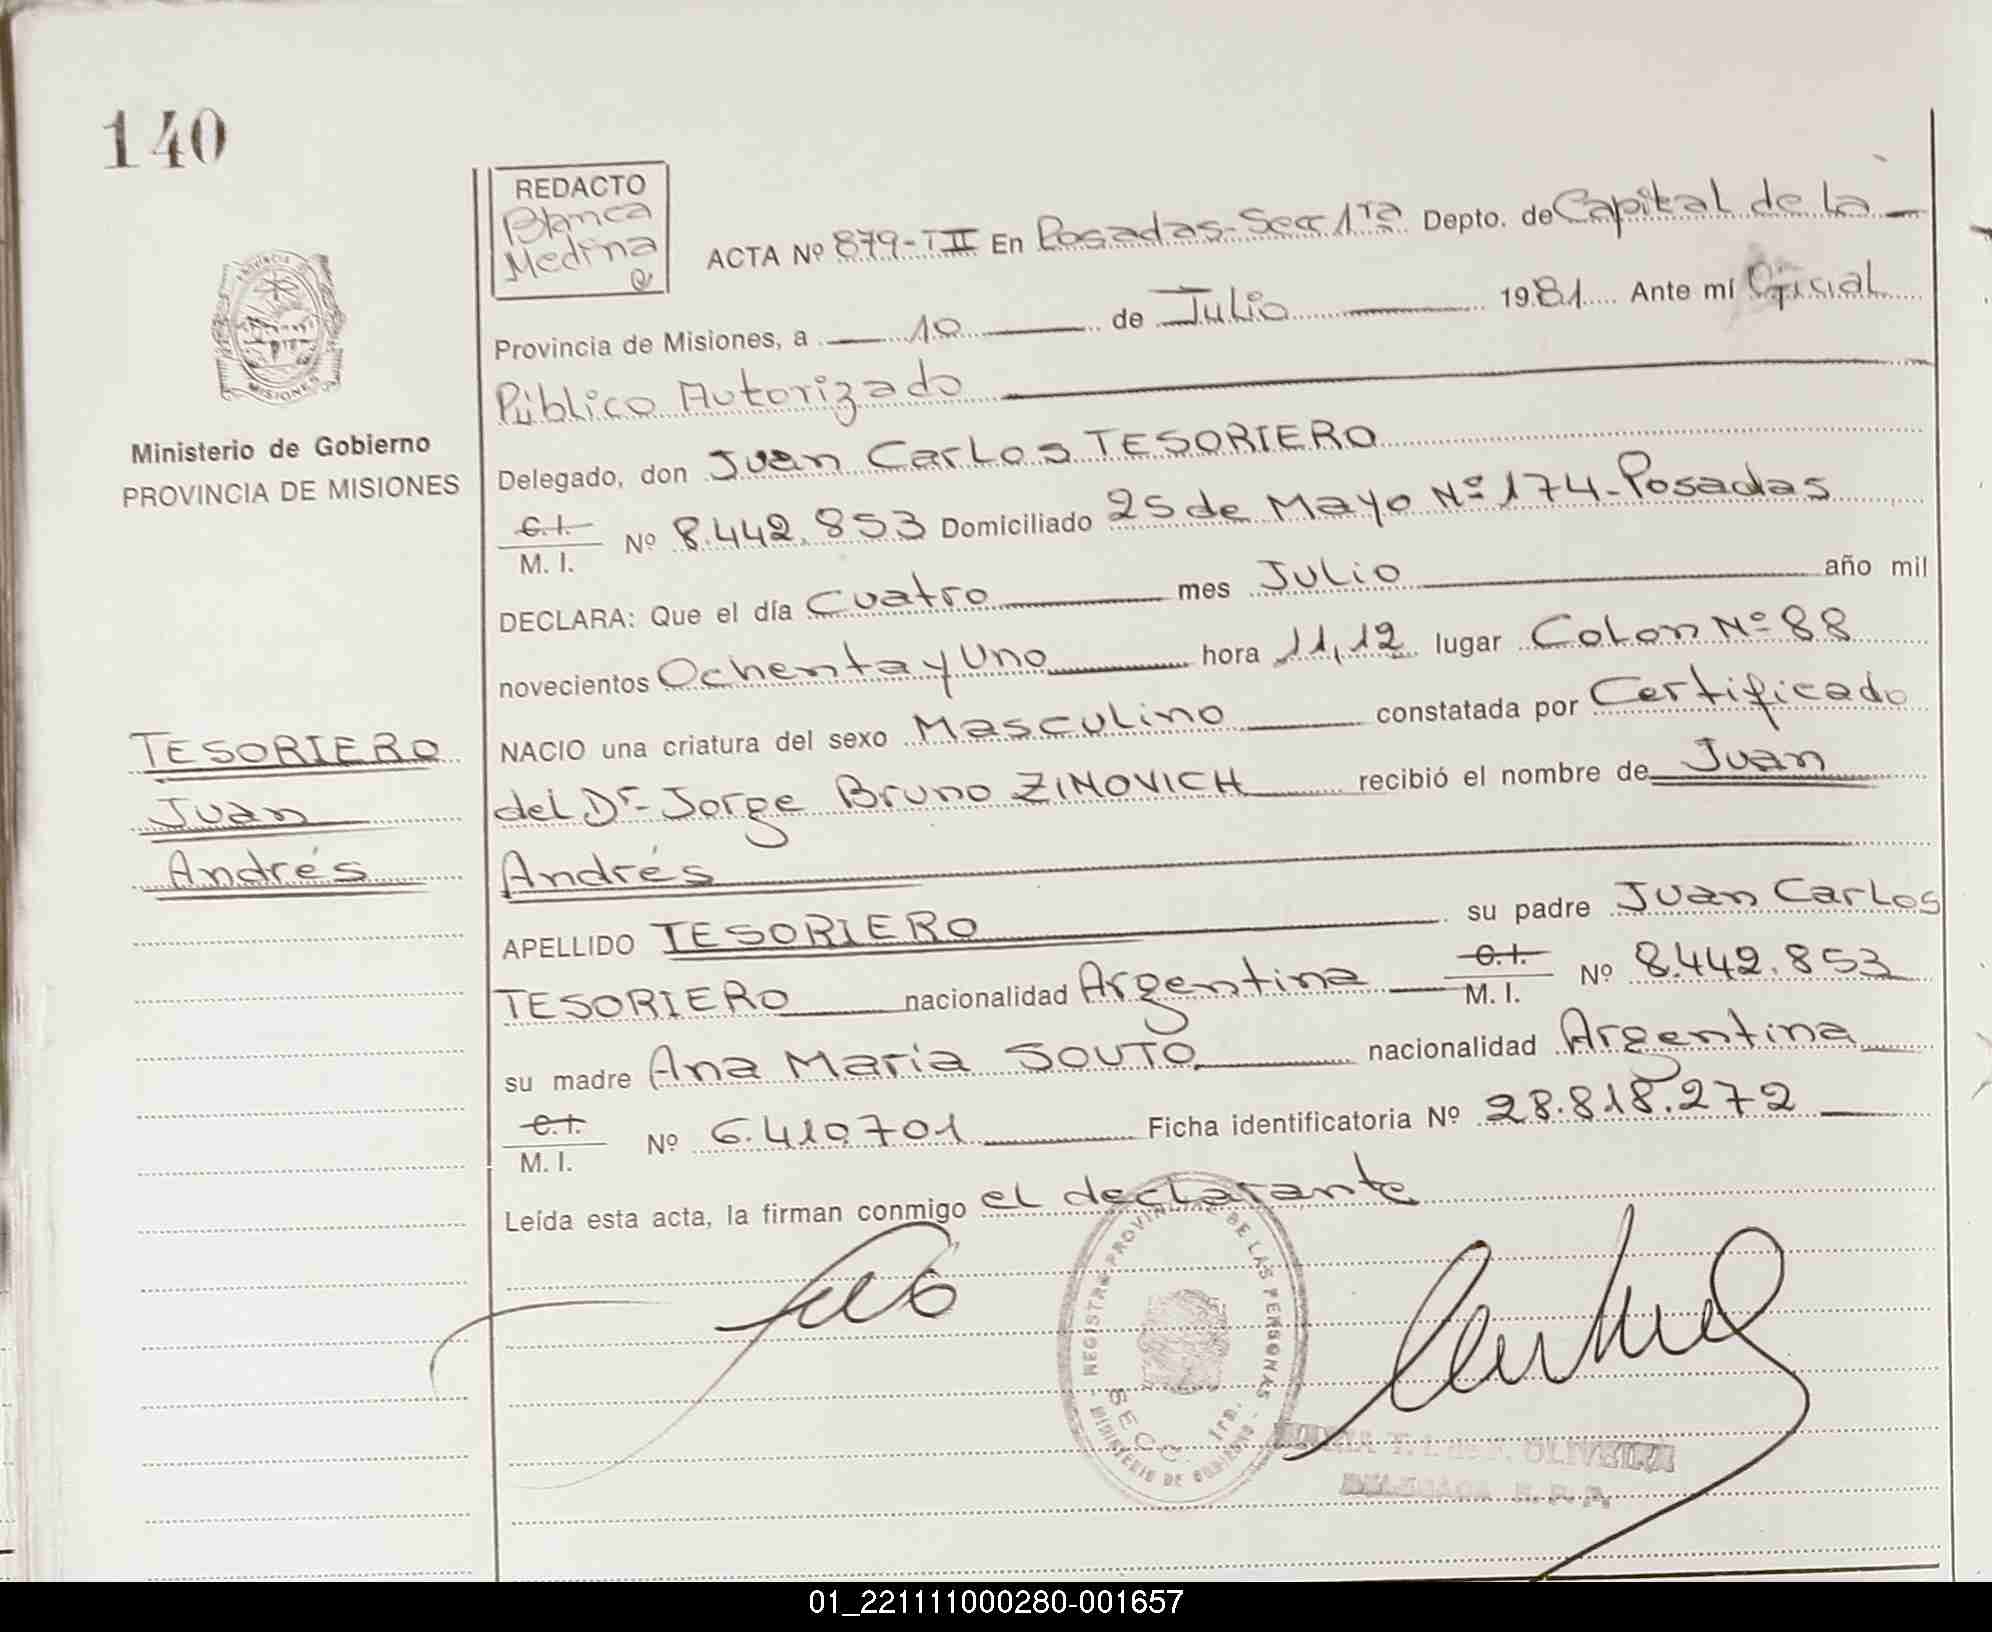 140
REDACTO
Blanca
Medina
ACTA Nº 879-TII En Posadas-Secc 1ra Depto. de Capital de la
Provincia de Misiones, a 10 de Julio 1981 Ante mí Oficial
Público Autorizado
Delegado, don Juan Carlos TESORIERO
C.I.
M. I. Nº 8.442.853 Domiciliado 25 de Mayo Nº 174-Posadas
DECLARA: Que el día Cuatro mes Julio año mil
novecientos Ochenta y Uno hora 11,12 lugar Colon Nº 88
NACIO una criatura del sexo Masculino constatada por Certificado
del Dr. Jorge Bruno ZINOVICH recibió el nombre de Juan
Andrés
APELLIDO TESORIERO su padre Juan Carlos
TESORIERO nacionalidad Argentina C.I. M. I. Nº 8.442.853
su madre Ana Maria SOUTO nacionalidad Argentina
C.I.
M. I. Nº 6.410.701 Ficha identificatoria Nº 28.818.272
Leída esta acta, la firman conmigo el declarante
PROVINCIA
MISIONES
Ministerio de Gobierno
PROVINCIA DE MISIONES
TESORIERO
Juan
Andrés
REGISTRO PROVINCIAL DE LAS PERSONAS
SECC. 1ra.
MINISTERIO DE GOBIERNO
OLIVEIRA
DELEGADA R. P. P.
01_221111000280-001657